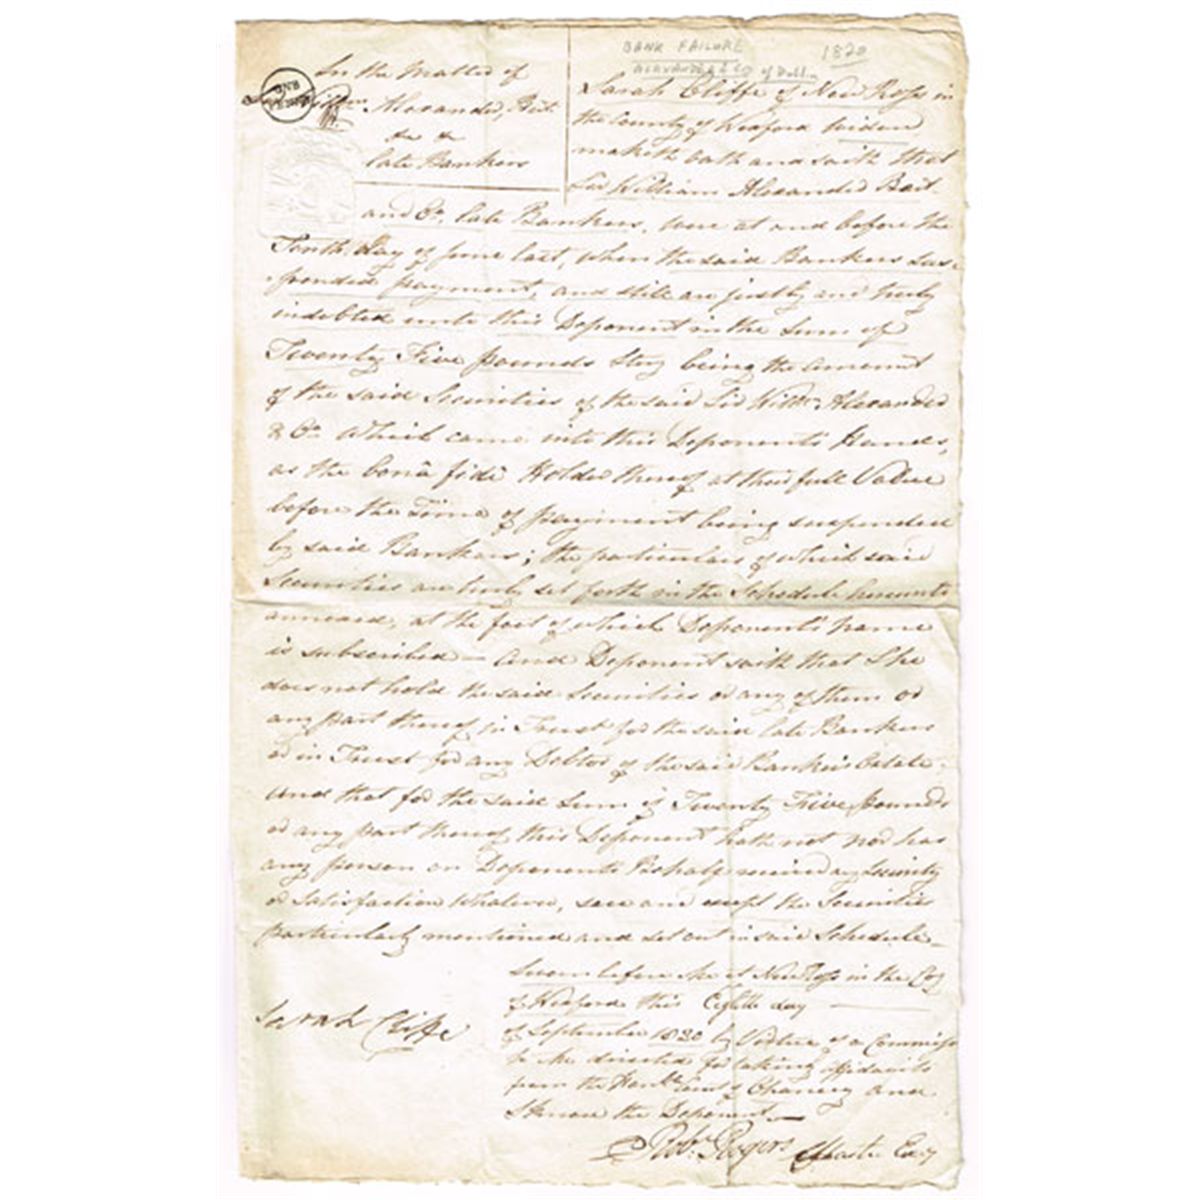 BANK FAILURE 1820
ALEXANDER & Co of Dublin
In the Matter of
Sir Willm
Alexander, Bart
&c &c
late Bankers
Sarah Cliffe of New Ross in
the County of Wexford Widow
maketh Oath and saith that
Sir William Alexander Bart
and Co. late Bankers, were at and before the
Tenth day of June last, when the said Bankers sus-
pended payment, and still are justly and truly
indebted unto this Deponent in the Sum of
Twenty Five pounds Sterg being the amount
of the said Securities of the said Sir Willm Alexander
& Co. Which came into this Deponents Hands,
as the bonâ fide Holder thereof at their full Value
before the Time of payment being suspended
by said Bankers; the particulars of which said
Securities are truly set forth in the Schedule hereunto
annexed, at the foot of which Deponent's name
is subscribed — And Deponent saith that She
does not hold the said Securities or any of them or
any part thereof in Trust for the said late Bankers
or in Trust for any Debtor of the said Bankers Estate;
And that for the said Sum of Twenty Five pounds
or any part thereof this Deponent hath not nor has
any person on Deponents Behalf received any Security
or Satisfaction Whatever, save and except the Securities
particularly mentioned and set out in said Schedule —
Sworn before me at New Ross in the Coy
of Wexford this Eighth day
Sarah Cliffe
of September 1820 by Virtue of a Commission
to me directed for taking Affidavits
from the Honble Court of Chancery and
I know the Deponent —
Robt. Rogers Master Exty